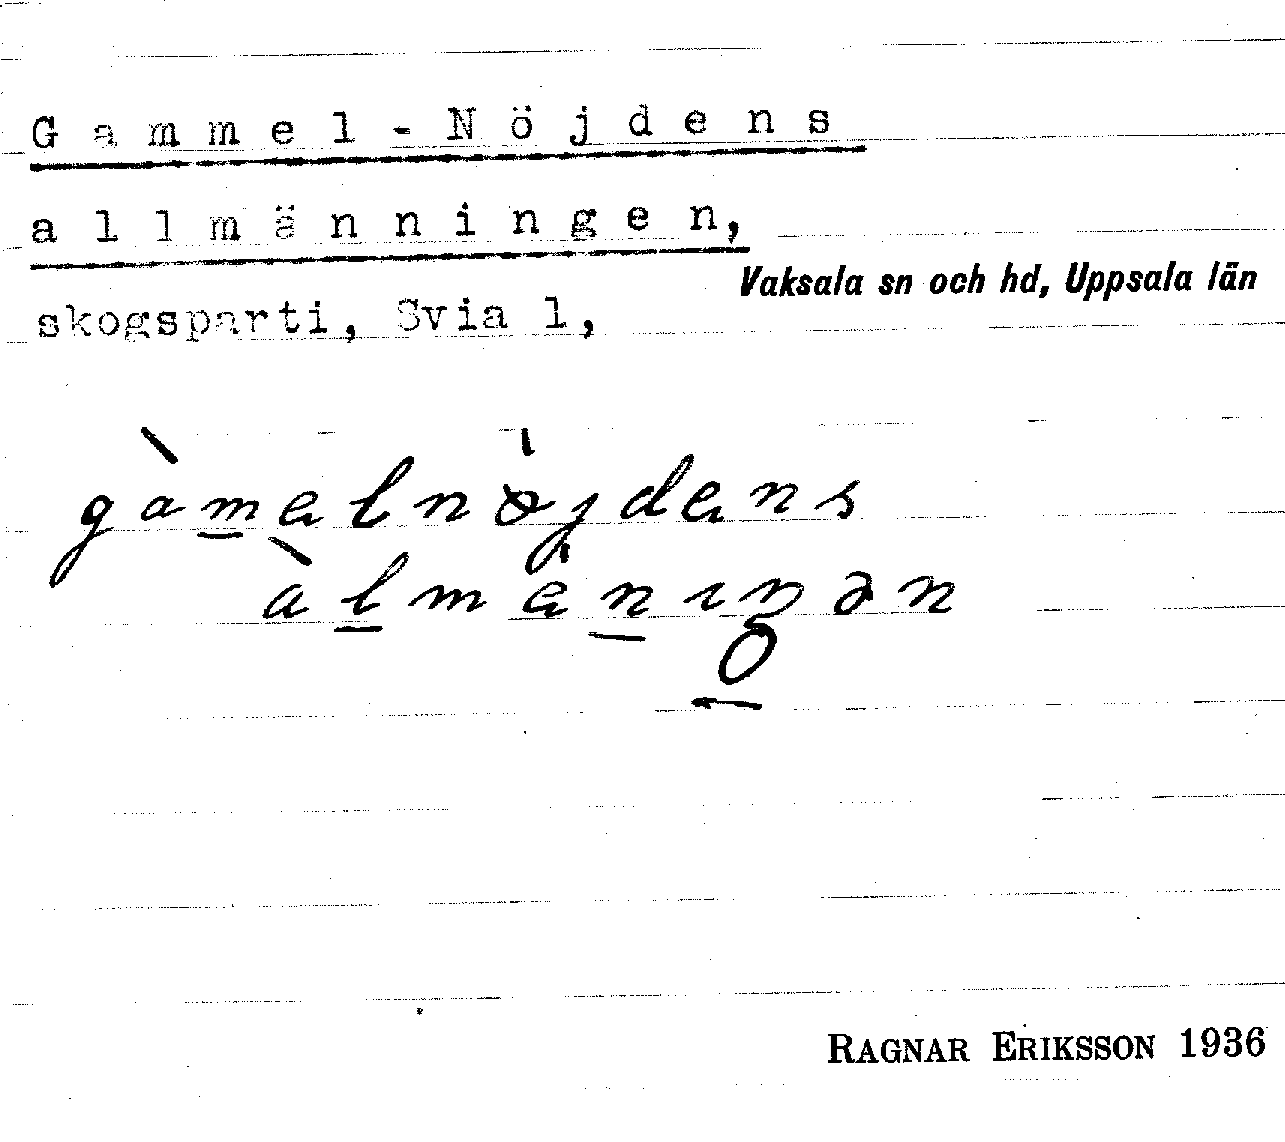 Gammel-Nöjdens
allmänningen,
Vaksala sn och hd, Uppsala län
skogsparti, Svia 1,
gàmalnøjdens
àlmäniŋən
RAGNAR ERIKSSON 1936